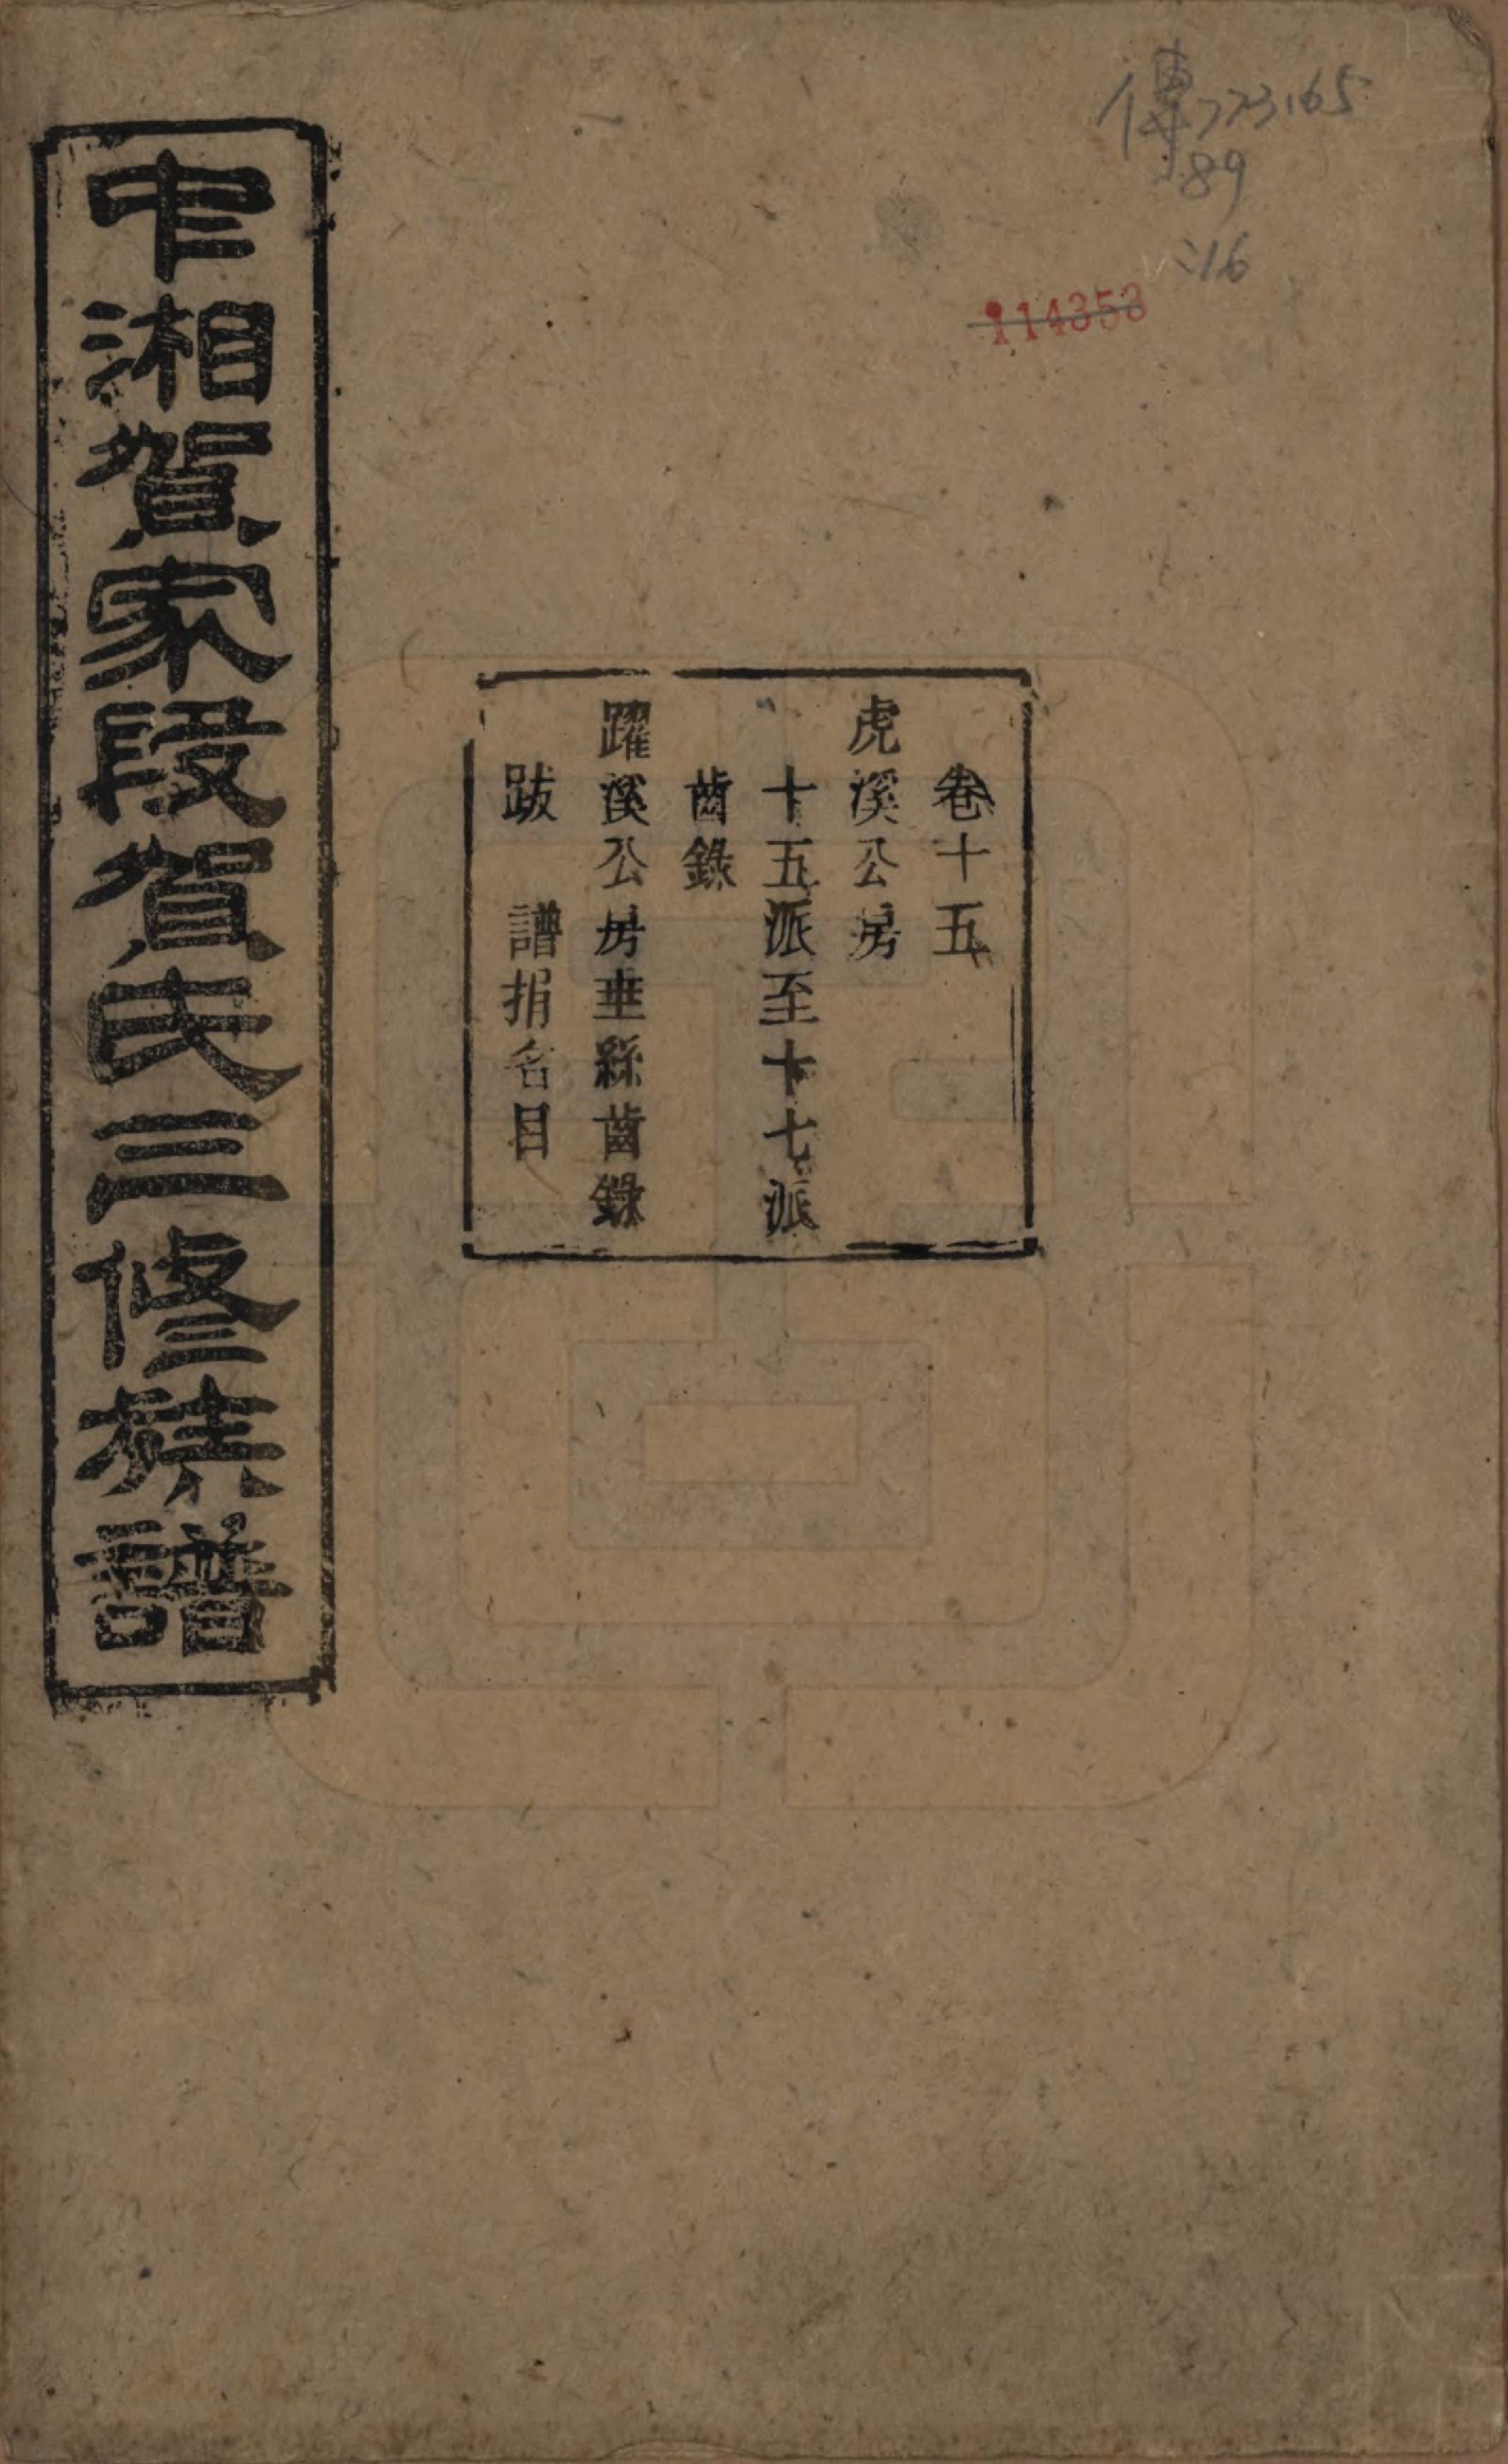 傳773165
89
:16
114353
卷十五
虎溪公房
十五派至十七派
齒錄
躍溪公房垂絲齒錄
跋 譜捐名目
中湘賀家段賀氏三修族譜